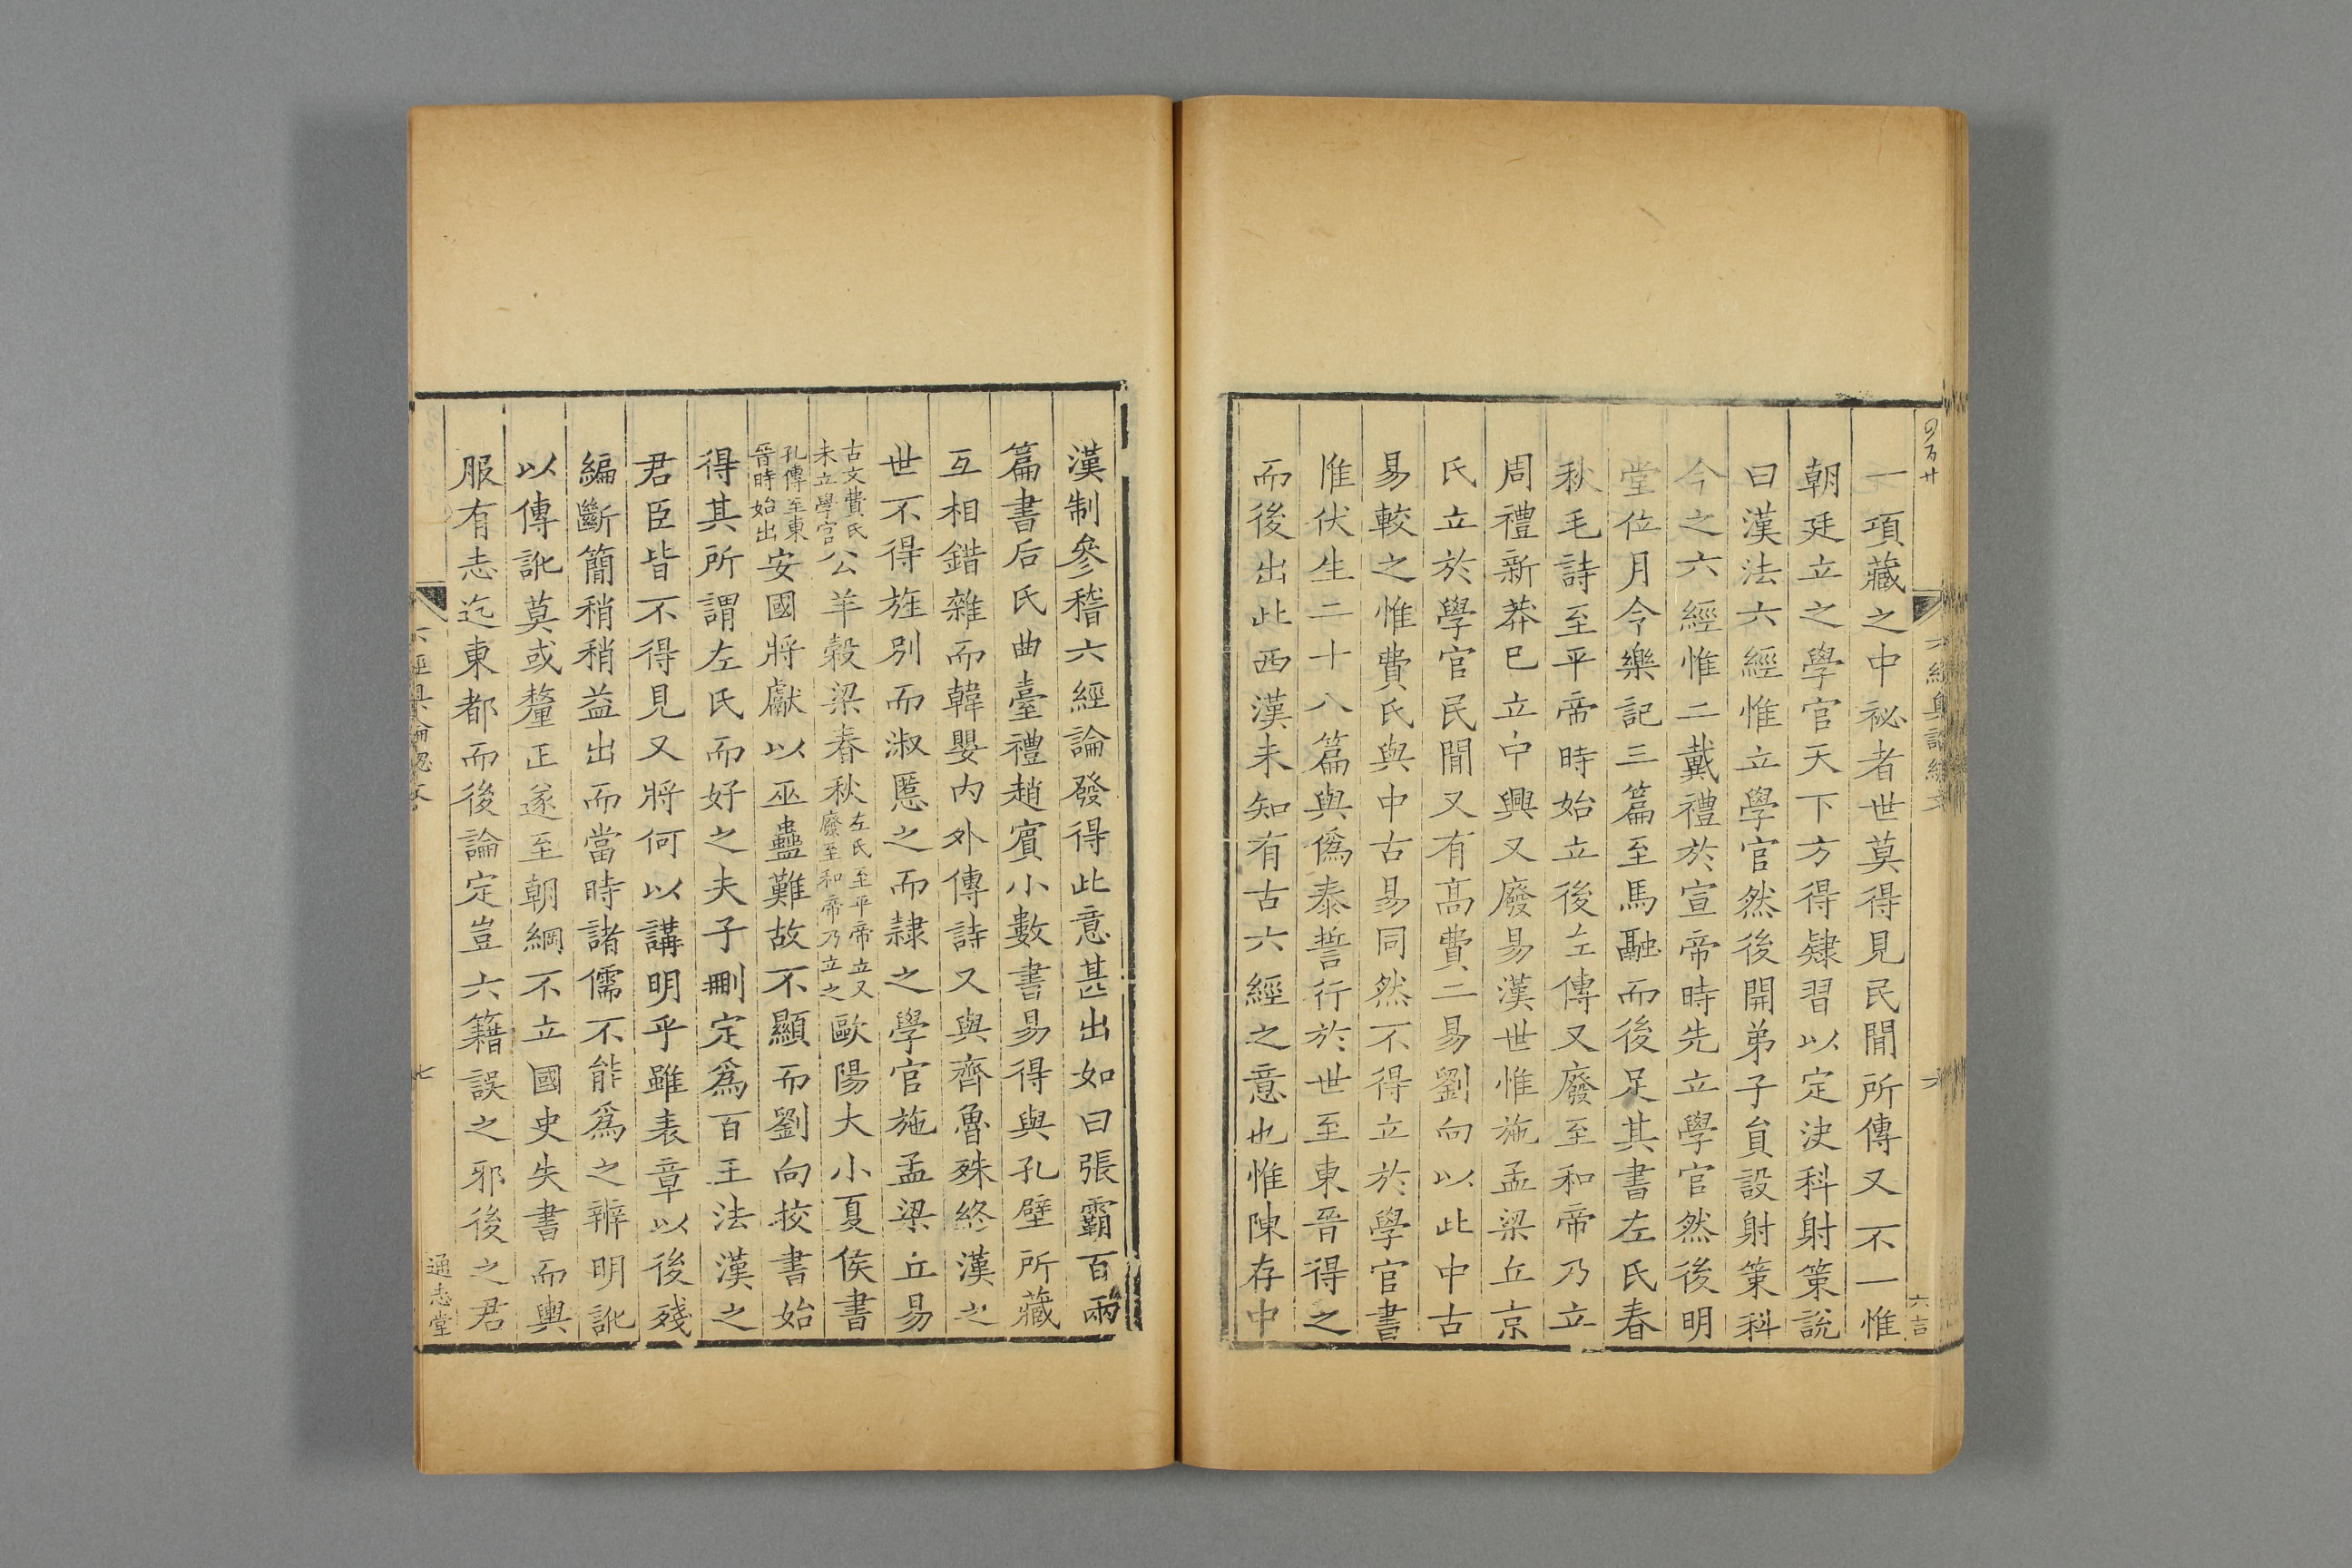 一項藏之中祕者世莫得見民間所傳又不一惟
朝廷立之學官天下方得肄習以定決科射策說
曰漢法六經惟立學官然後開弟子員設射策科
今之六經惟二戴禮於宣帝時先立學官然後明
堂位月令樂記三篇至馬融而後足其書左氏春
秋毛詩至平帝時始立後左傳又廢至和帝乃立
周禮新莽已立中興又廢易漢世惟施孟梁丘京
氏立於學官民閒又有高費二易劉向以此中古
易較之惟費氏與中古易同然不得立於學官書
惟伏生二十八篇與僞泰誓行於世至東晉得之
而後出此西漢未知有古六經之意也惟陳存中
六吉
漢制參稽六經論發得此意甚出如曰張霸百兩
篇書后氏曲臺禮趙賓小數書易得與孔壁所藏
互相錯雜而韓嬰內外傳詩又與齊魯殊終漢之
世不得旌別而淑慝之而隷之學官施孟梁丘易
古文費氏未立學官公羊榖梁春秋左氏至平帝立又廢至和帝乃立之歐陽大小夏侯書
孔傳至東晉時始出安國將獻以巫蠱難故不顯而劉向挍書始
得其所謂左氏而好之夫子刪定爲百王法漢之
君臣皆不得見又將何以講明乎雖表章以後殘
編斷簡稍稍益出而當時諸儒不能爲之辨明訛
以傳訛莫或釐正遂至朝綱不立國史失書而輿
服有志迄東都而後論定豈六籍誤之邪後之君
七
通志堂